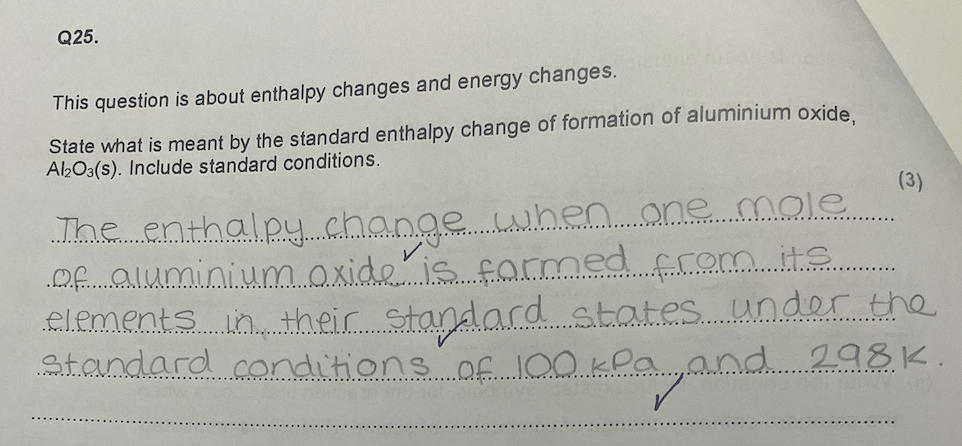 Q25.
This question is about enthalpy changes and energy changes.
State what is meant by the standard enthalpy change of formation of aluminium oxide,
Al₂O₃(s). Include standard conditions.
(3)
The enthalpy change when one mole
of aluminium oxide is formed from its
elements in their standard states under the
standard conditions of 100 kPa and 298K.